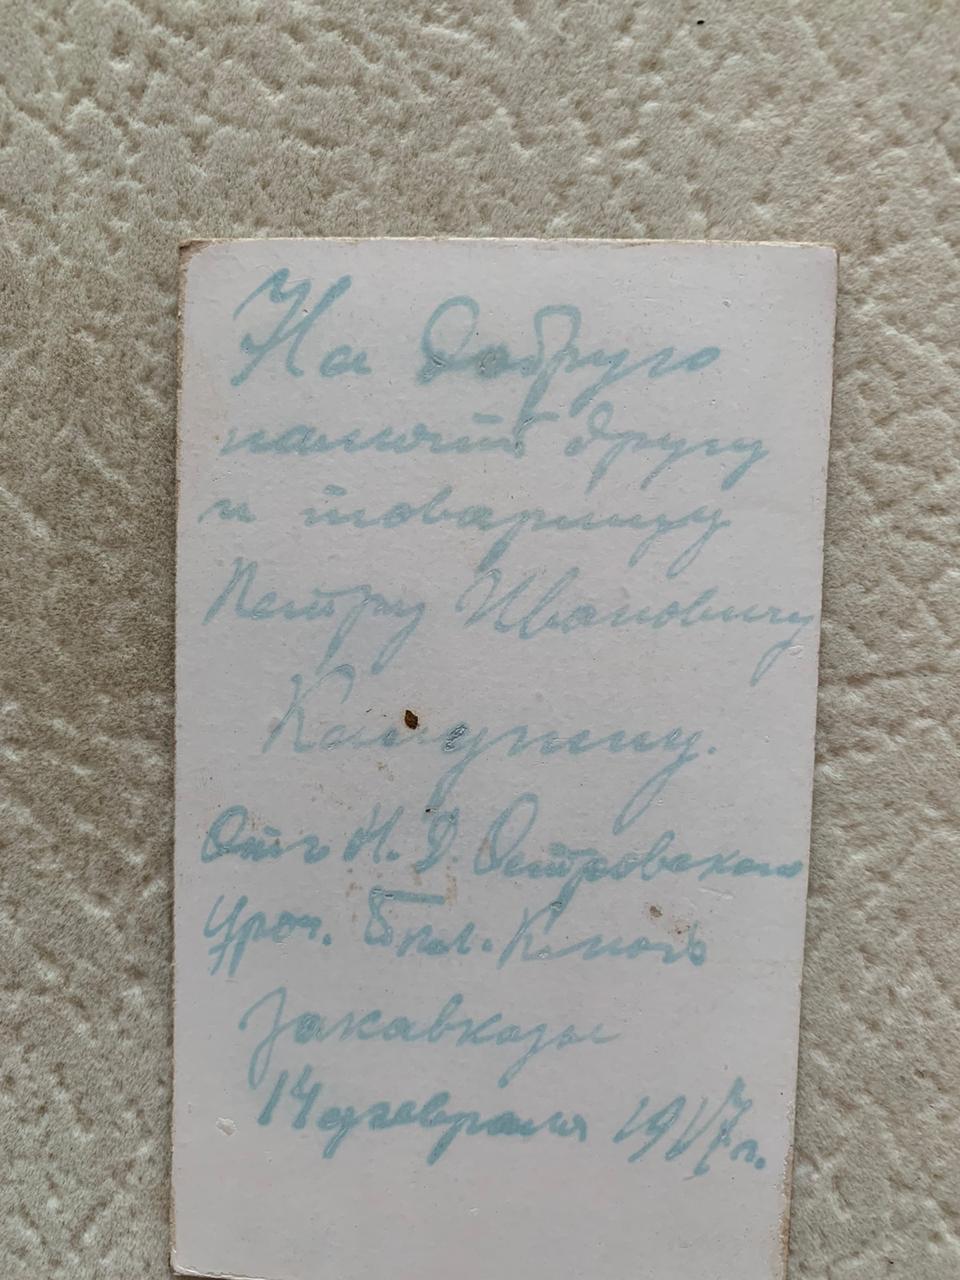 На добрую
память другу
и товарищу
Петру Ивановичу
От Н. Д. Островского
Уроч. Ключъ
Закавказье
14 февраля 1917 г.